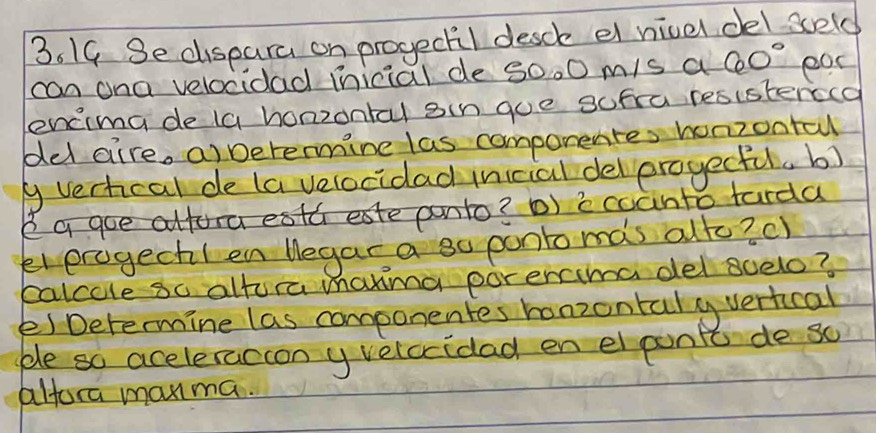 3.19 Se dispara on proyectil desde el nivel del suelo
con ona velocidad inicial de 50.0 m/s a 60° por
encima de la honzontal sin que sufra resistencia
del aire. a) Determine las componentes honzontal
y vertical de la velocidad inicial del proyectil. b)
é a que altura está este ponto? b) é cuánto tarda
el proyectil en llegar a su ponto más alto? c)
calcule su altura maxima por encima del suelo?
e) Determine las componentes honzontal y vertical
de so aceleraccon y velocidad en el ponto de so
altora maxima.